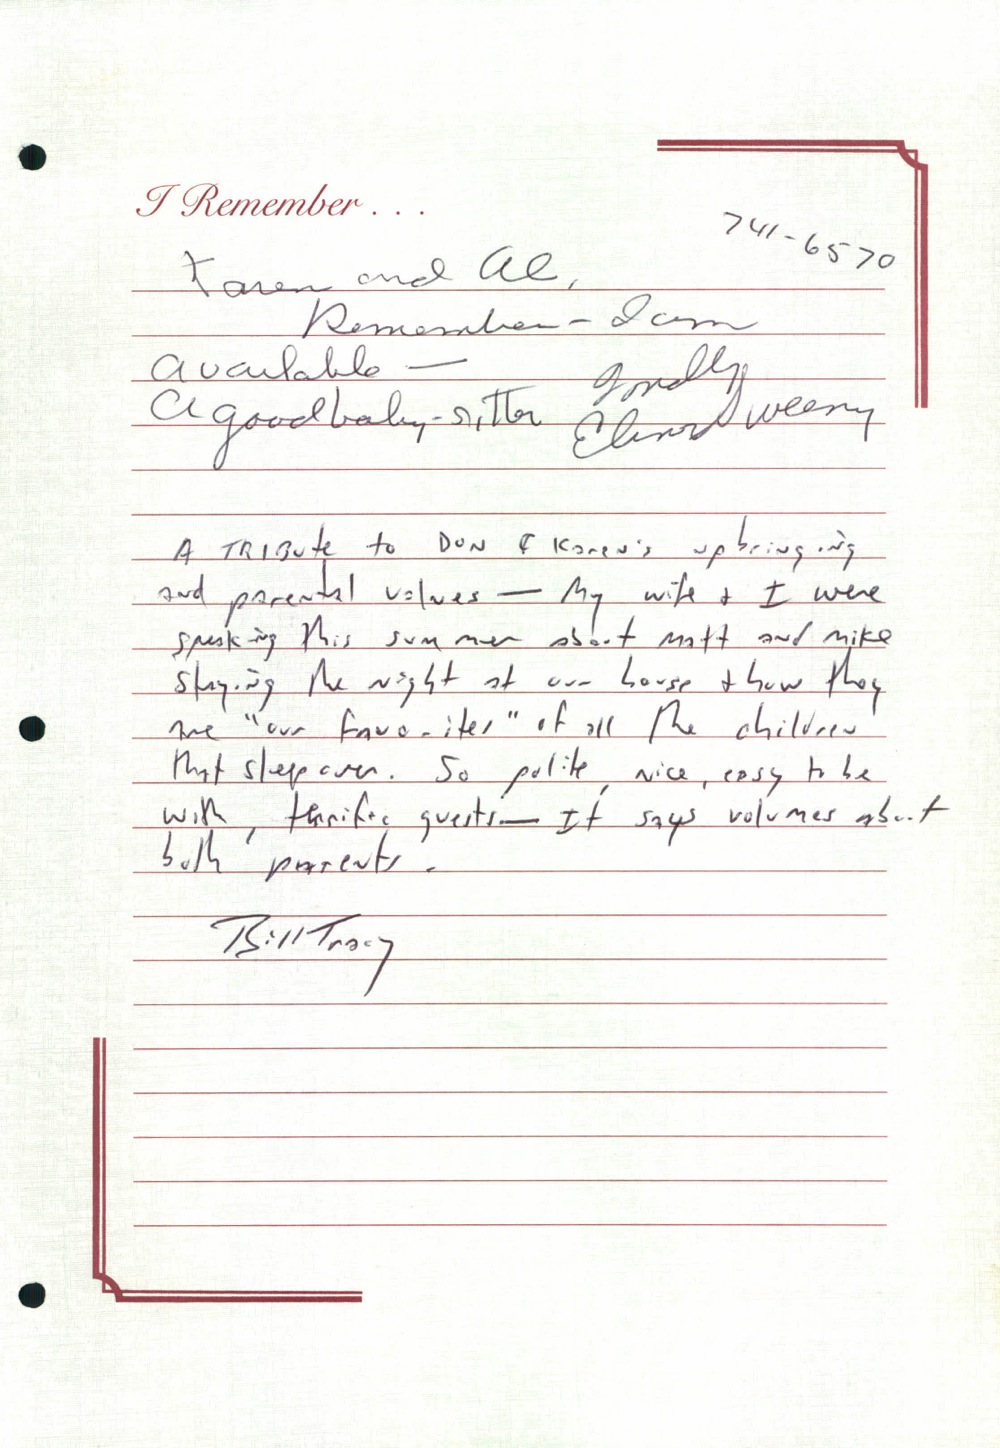 I Remember . . .
741-6570
Karen and Al,
Remember - I am
available —
A good baby-sitter
Fondly
Elinor Sweeny
A TRIBute to DON & Karen's upbringing
and parental values — My wife & I were
speaking this summer about Matt and Mike
staying the night at our house & how they
are "our favorites" of all the children
that sleep over. So polite, nice, easy to be
with, terrific guests — It says volumes about
both parents.
Bill Tracy